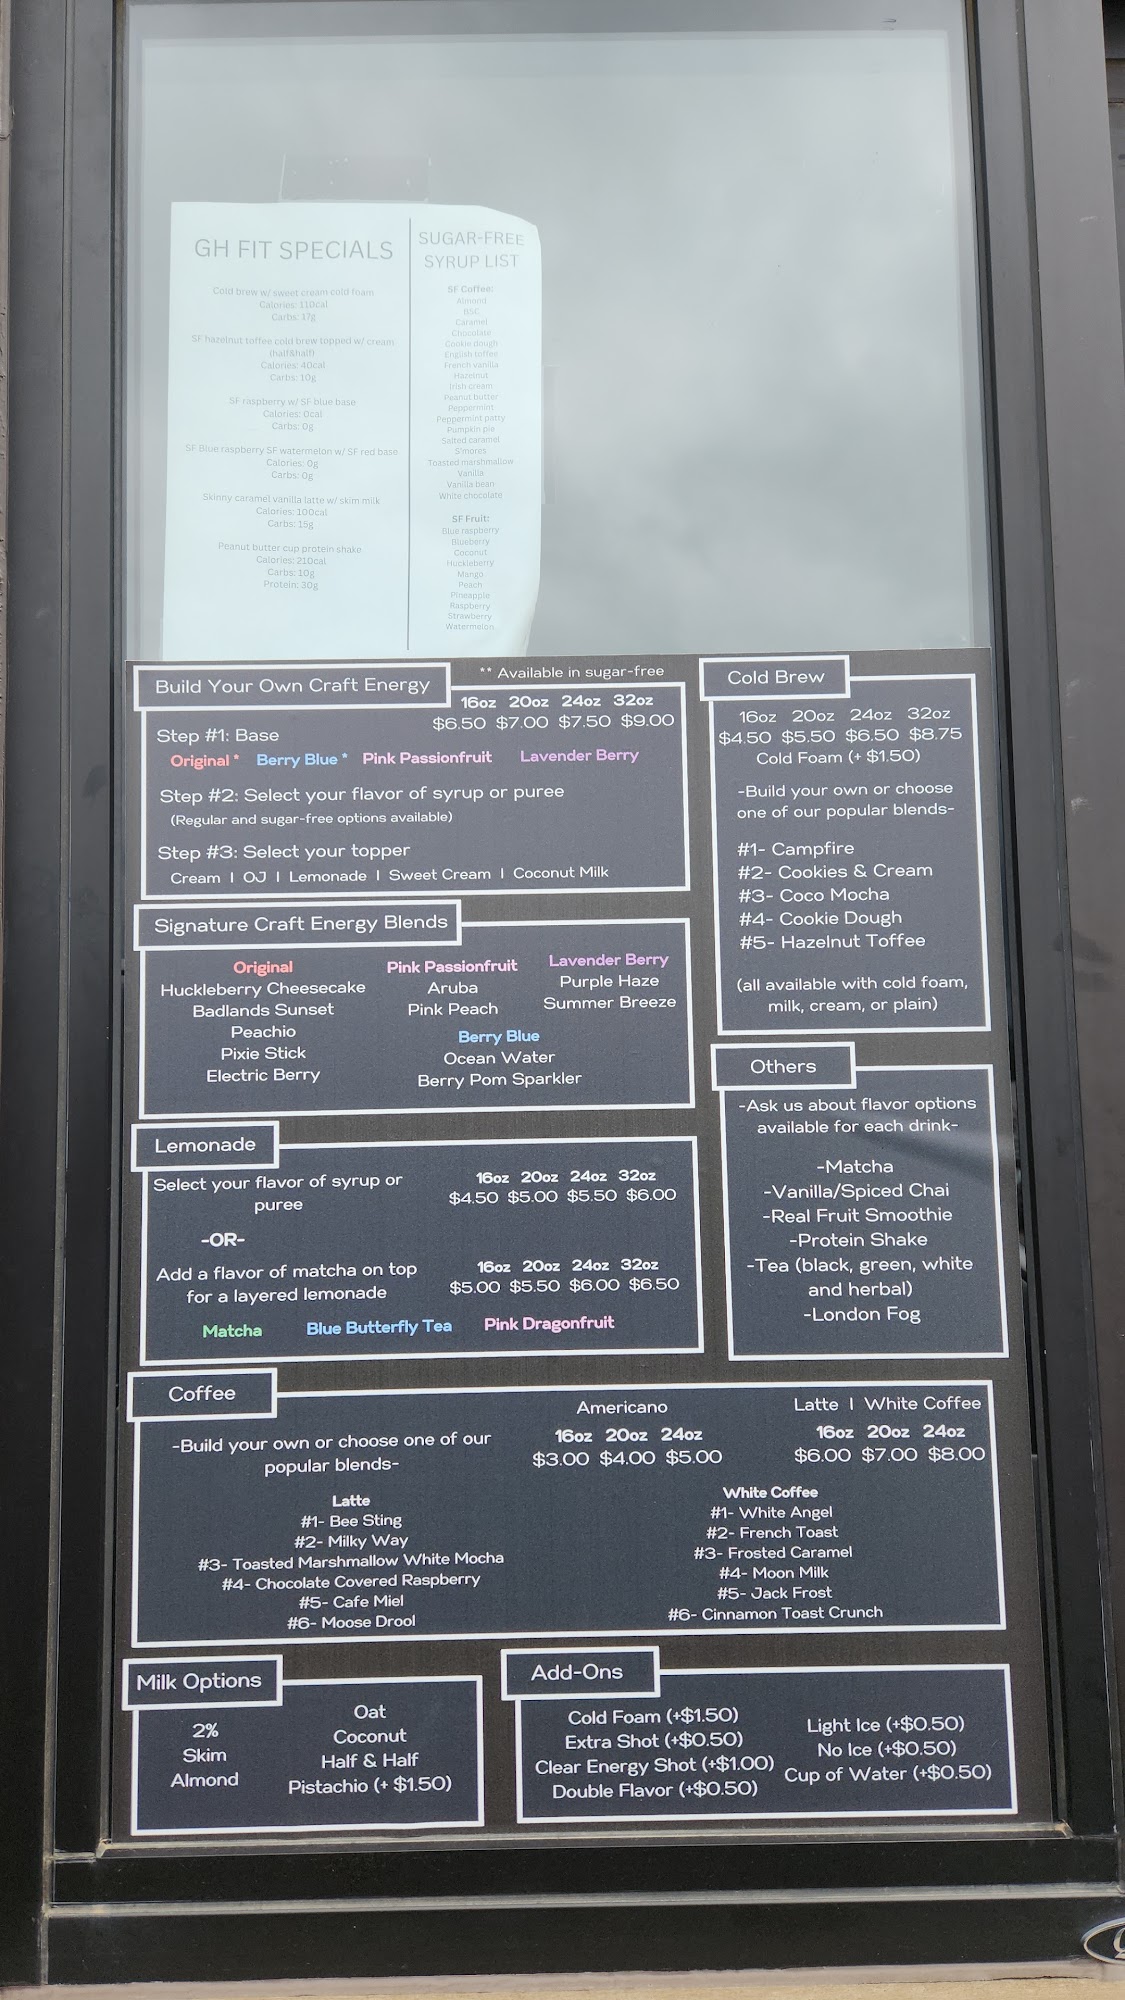 GH FIT SPECIALS
Cold brew w/ sweet cream cold foam
Calories: 110cal
Carbs: 17g
SF hazelnut toffee cold brew topped w/ cream
(half&half)
Calories: 40cal
Carbs: 10g
SF raspberry w/ SF blue base
Calories: 0cal
Carbs: 0g
SF Blue raspberry SF watermelon w/ SF red base
Calories: 0g
Carbs: 0g
Skinny caramel vanilla latte w/ skim milk
Calories: 100cal
Carbs: 15g
Peanut butter cup protein shake
Calories: 210cal
Carbs: 10g
Protein: 30g
SUGAR-FREE
SYRUP LIST
SF Coffee:
Almond
BSC
Caramel
Chocolate
Cookie dough
English toffee
French vanilla
Hazelnut
Irish cream
Peanut butter
Peppermint
Peppermint patty
Pumpkin pie
Salted caramel
S'mores
Toasted marshmallow
Vanilla
Vanilla bean
White chocolate
SF Fruit:
Blue raspberry
Blueberry
Coconut
Huckleberry
Mango
Peach
Pineapple
Raspberry
Strawberry
Watermelon
Build Your Own Craft Energy
** Available in sugar-free
16oz 20oz 24oz 32oz
$6.50 $7.00 $7.50 $9.00
Step #1: Base
Original * Berry Blue * Pink Passionfruit Lavender Berry
Step #2: Select your flavor of syrup or puree
(Regular and sugar-free options available)
Step #3: Select your topper
Cream | OJ | Lemonade | Sweet Cream | Coconut Milk
Cold Brew
16oz 20oz 24oz 32oz
$4.50 $5.50 $6.50 $8.75
Cold Foam (+ $1.50)
-Build your own or choose
one of our popular blends-
#1- Campfire
#2- Cookies & Cream
#3- Coco Mocha
#4- Cookie Dough
#5- Hazelnut Toffee
(all available with cold foam,
milk, cream, or plain)
Signature Craft Energy Blends
Original
Huckleberry Cheesecake
Badlands Sunset
Peachio
Pixie Stick
Electric Berry
Pink Passionfruit
Aruba
Pink Peach
Lavender Berry
Purple Haze
Summer Breeze
Berry Blue
Ocean Water
Berry Pom Sparkler
Others
-Ask us about flavor options
available for each drink-
-Matcha
-Vanilla/Spiced Chai
-Real Fruit Smoothie
-Protein Shake
-Tea (black, green, white
and herbal)
-London Fog
Lemonade
Select your flavor of syrup or
puree
16oz 20oz 24oz 32oz
$4.50 $5.00 $5.50 $6.00
-OR-
Add a flavor of matcha on top
for a layered lemonade
16oz 20oz 24oz 32oz
$5.00 $5.50 $6.00 $6.50
Matcha Blue Butterfly Tea Pink Dragonfruit
Coffee
-Build your own or choose one of our
popular blends-
Americano
16oz 20oz 24oz
$3.00 $4.00 $5.00
Latte | White Coffee
16oz 20oz 24oz
$6.00 $7.00 $8.00
Latte
#1- Bee Sting
#2- Milky Way
#3- Toasted Marshmallow White Mocha
#4- Chocolate Covered Raspberry
#5- Cafe Miel
#6- Moose Drool
White Coffee
#1- White Angel
#2- French Toast
#3- Frosted Caramel
#4- Moon Milk
#5- Jack Frost
#6- Cinnamon Toast Crunch
Milk Options
2%
Skim
Almond
Oat
Coconut
Half & Half
Pistachio (+ $1.50)
Add-Ons
Cold Foam (+$1.50)
Extra Shot (+$0.50)
Clear Energy Shot (+$1.00)
Double Flavor (+$0.50)
Light Ice (+$0.50)
No Ice (+$0.50)
Cup of Water (+$0.50)